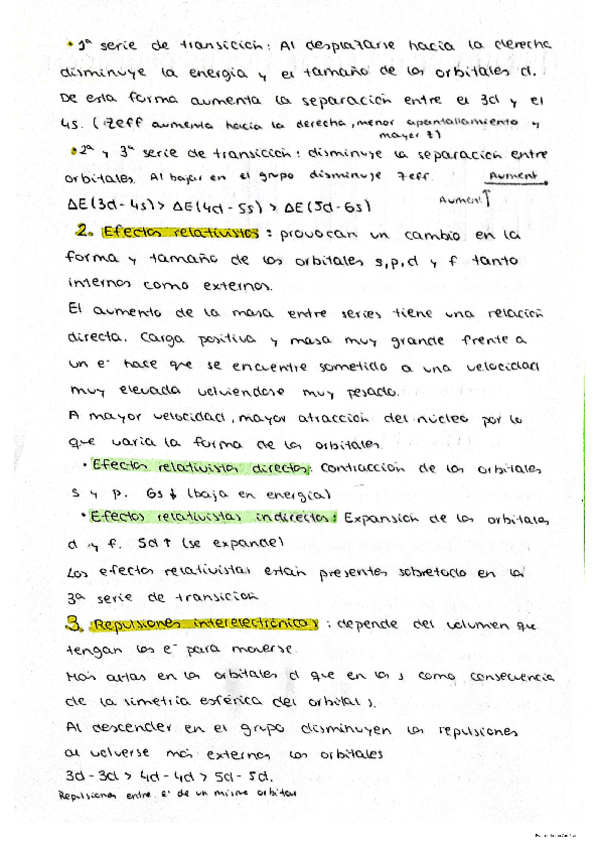 • 1ª serie de transición: Al desplazarse hacia la derecha
disminuye la energia y el tamaño de los orbitales d.
De esta forma aumenta la separación entre el 3d y el
4s. (Zeff aumenta hacia la derecha, menor apantallamiento y
mayor Z)
• 2ª y 3ª serie de transición: disminuye la separación entre
orbitales. Al bajar en el grupo disminuye Zeff. Aument →
ΔE(3d-4s) > ΔE(4d-5s) > ΔE(5d-6s) Aument ↑
2. Efectos relativistas: provocan un cambio en la
forma y tamaño de los orbitales s, p, d y f tanto
internos como externos.
El aumento de la masa entre series tiene una relación
directa. Carga positiva y masa muy grande frente a
un e⁻ hace que se encuentre sometido a una velocidad
muy elevada volviendose muy pesado.
A mayor velocidad, mayor atracción del núcleo por lo
que varia la forma de los orbitales
• Efectos relativistas directos: contracción de los orbitales
s y p. 6s ↓ (baja en energia)
• Efectos relativistas indirectos: Expansión de los orbitales
d y f. 5d ↑ (se expande)
Los efectos relativistas están presentes sobretodo en la
3ª serie de transición
3. Repulsiones interelectrónicas: depende del volumen que
tengan los e⁻ para moverse.
Más altas en los orbitales d que en los s como consecuencia
de la simetría esférica del orbital s.
Al descender en el grupo disminuyen las repulsiones
al volverse más externos los orbitales
3d-3d > 4d-4d > 5d-5d.
Repulsiones entre e⁻ de un mismo orbital